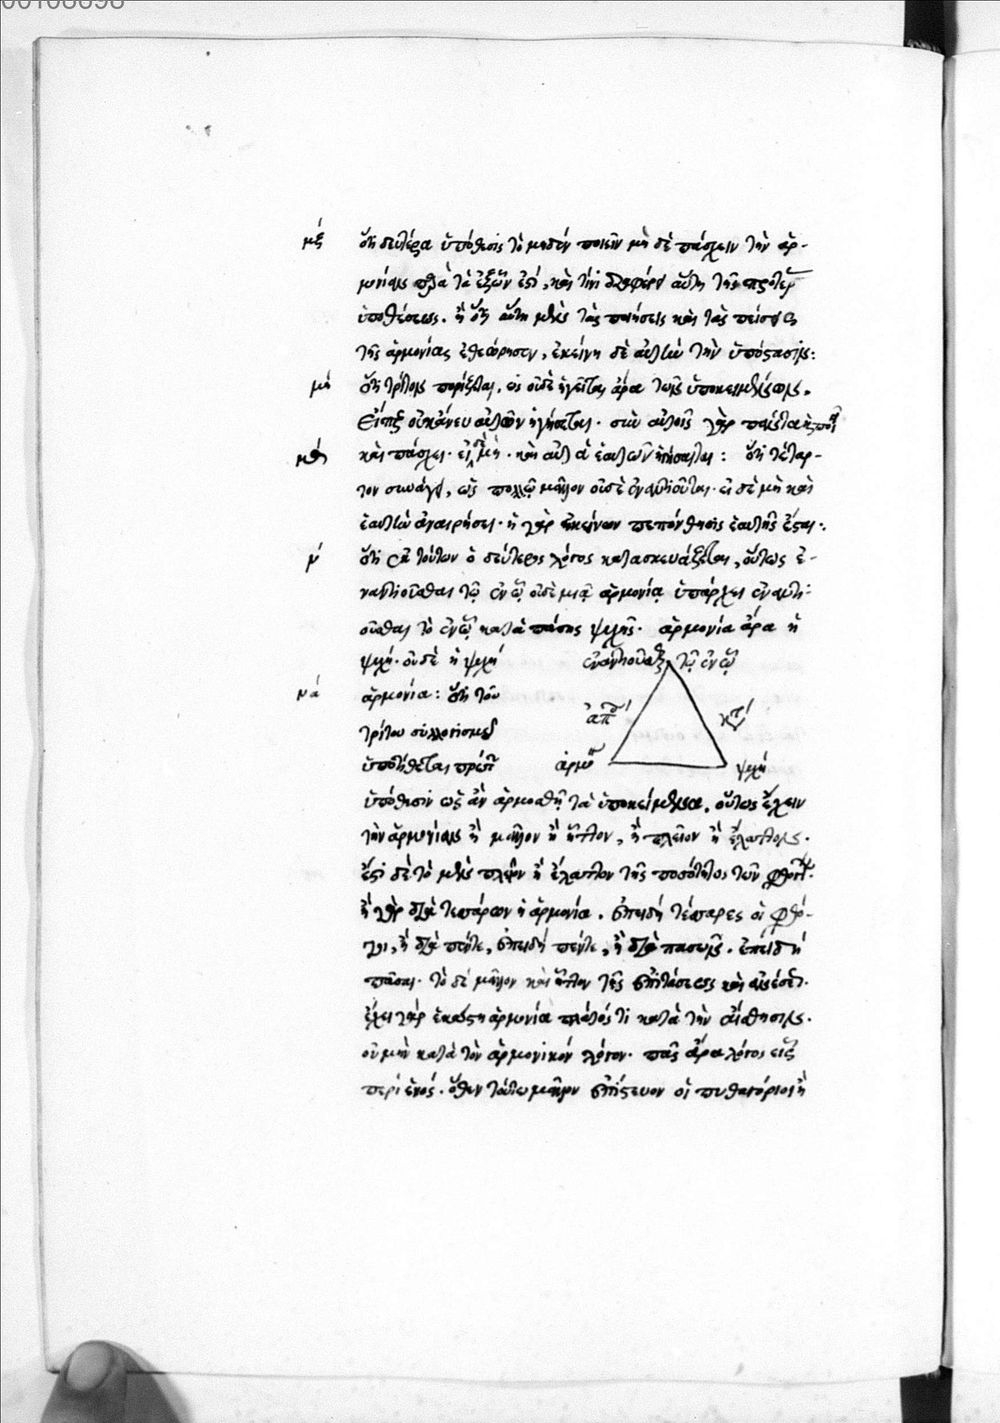 00108698
μζ ὅτι δευτέρα ὑπόθεσις τὸ μηδὲν ποιεῖν μὴ δὲ πάσχειν τὴν ἁρ-
μονίαν παρὰ τὰ ἐξ ὧν ἐστί, καὶ τίνι διαφέρει αὕτη τῆς προτέρας
ὑποθέσεως. ἢ ὅτι αὕτη μὲν τὰς ποιήσεις καὶ τὰς πείσεις
τῆς ἁρμονίας ἐθεώρησεν, ἐκείνη δὲ αὐτὴν τὴν ὑπόστασιν:
μή ὅτι τρίτον πορίζεται, ὡς οὐδὲ ἡγεῖται ἄρα τῶν ὑποκειμένων.
οὐκ ἄνευ αὐτῶν ἡγήσεται. σὺν αὐτοῖς γὰρ
μθ καὶ πάσχει. εἰ δὲ μή. καὶ αὐτὰ ἑαυτῶν ἡγήσεται: ὅτι τέταρ-
τον συνάγει, ὡς πολλῷ μᾶλλον οὐδὲ ἐναντιοῦται. εἰ δὲ μὴ καὶ
ἑαυτὴν ἀναιρήσει. ἡ γὰρ ἐκείνων πεπόνθησις ἑαυτῆς ἔσται:
ν ὅτι ἐκ τούτων ὁ δεύτερος λόγος κατασκευάζεται, οὕτως ἐ-
ναντιοῦσθαι τῷ ἐν ᾧ οὐδεμιᾷ ἁρμονίᾳ ὑπάρχει ἐναντι-
οῦσθαι τὸ ἐν ᾧ κατὰ πάσης ψυχῆς. ἁρμονία ἄρα ἡ
ψυχή. οὐδὲ ἡ ψυχὴ
ἐναντιοῦσθαι τῷ ἐν ᾧ
να ἁρμονία: ὅτι τοῦ
τρίτου συλλογισμοῦ
ὑποτίθεται πρώτην
ἁρμονία ψυχή
ὑπόθεσιν ὡς ἂν ἁρμοσθῇ τὰ ὑποκείμενα, οὕτως ἔχειν
τὴν ἁρμονίαν ἢ μᾶλλον ἢ ἧττον, ἢ πλεῖον ἢ ἔλαττον.
ἔστι δὲ τὸ μὲν πλεῖον ἢ ἔλαττον τῆς ποσότητος τῶν φθόγγων.
ἢ γὰρ διὰ τεσσάρων ἡ ἁρμονία. ἐπειδὴ τέσσαρες οἱ φθόγ-
γοι, ἢ διὰ πέντε, ἐπειδὴ πέντε, ἢ διὰ πασῶν. ἐπειδὴ
πᾶσαι. τὸ δὲ μᾶλλον καὶ ἧττον τῆς ἐπιτάσεως καὶ ἀνέσεως.
ἔχει γὰρ ἑκάστη ἁρμονία πλάτος τι κατὰ τὴν αἴσθησιν.
οὐ μὴν κατὰ τὸν ἁρμονικὸν λόγον. πᾶς ἄρα λόγος εἷς
περὶ ἑνός. ὅθεν τούτῳ μᾶλλον ἐπίστευον οἱ πυθαγόριοι ἢ